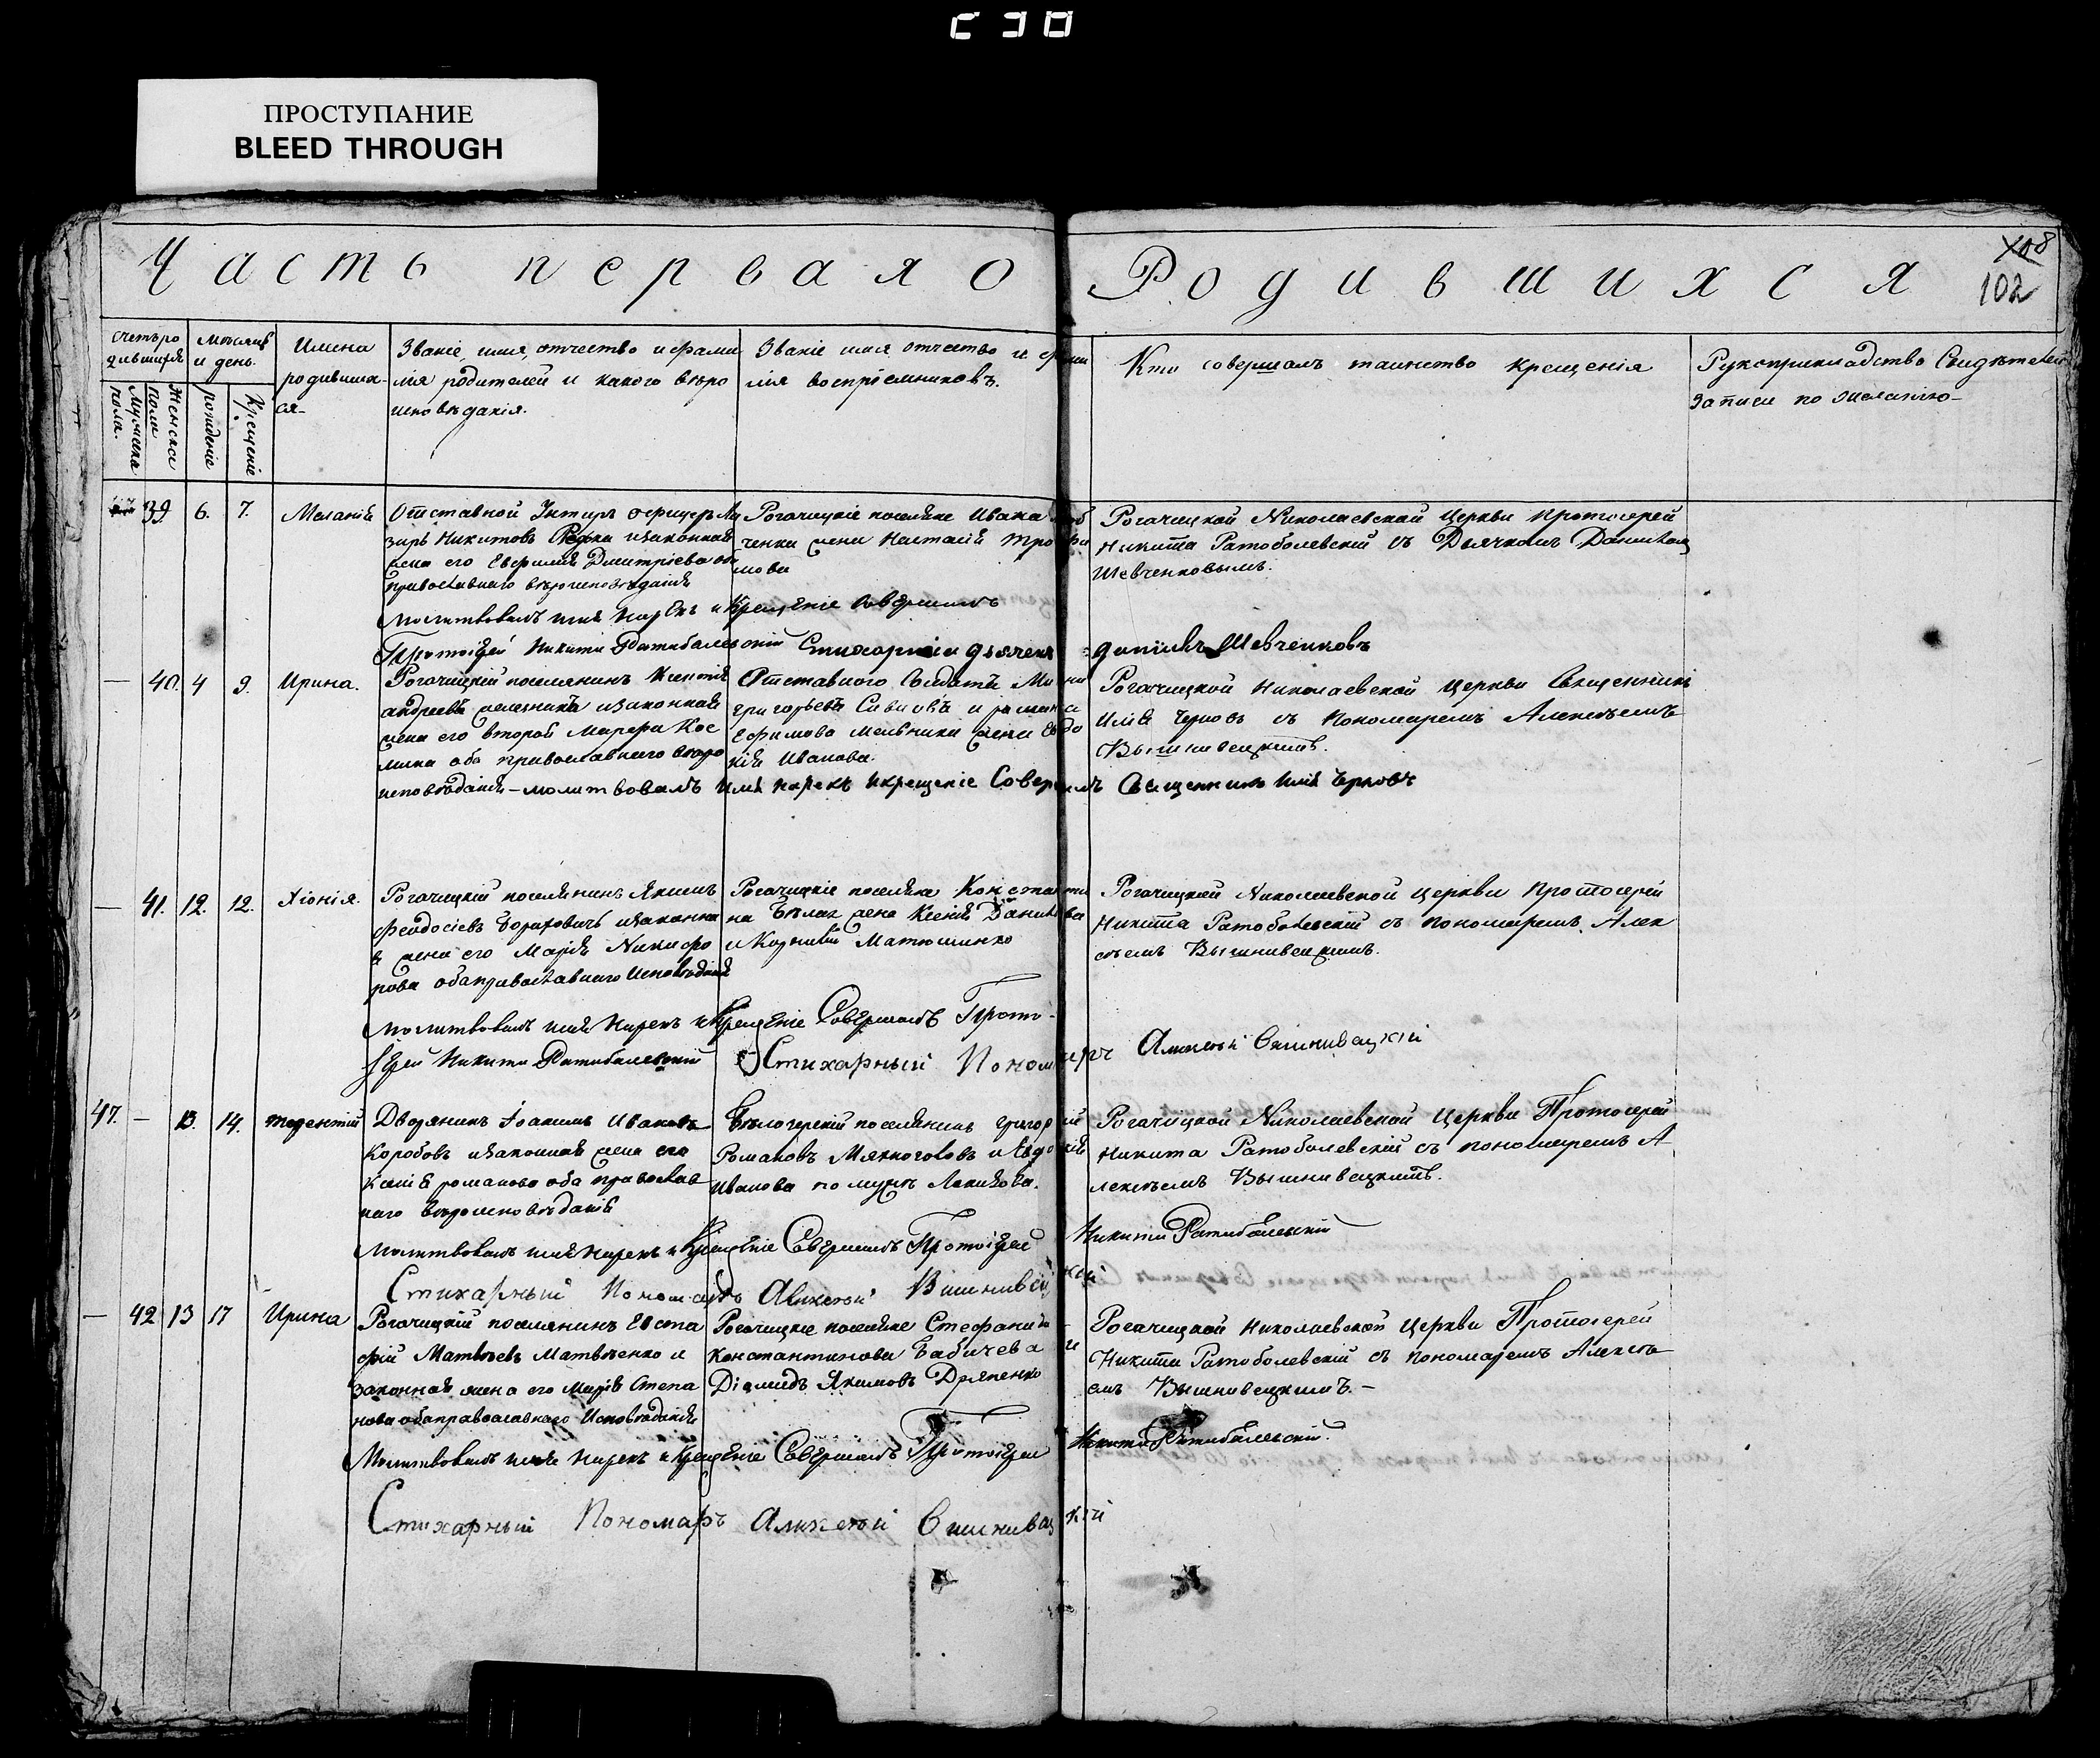 ПРОСТУПАНИЕ
BLEED THROUGH
Часть перваяо Родившихся
108
102
Счетъ ро
дившихся
Мѣсяцъ
и день.
Имена
родивших-
ся
Званіе, имя, отчество и фами
лія родителей и какого вѣро
исповѣданія.
Званіе имя отчество и фами
лія воспріемниковъ.
Кто совершалъ таинство крещенія
Рукоприкладство Свидѣтелей
записи по желанію
Мужеска
пола.
Женска
пола
рожденіе
Крещеніе
39. 6. 7. Меланія
Отставной Унтеръ офицеръ
Никитовъ и законная
жена его Евфимія Дмитріева оба
православнаго вѣроисповѣданія
Рогачицкіе поселяне Ивана
ченка жена Настасія Трофи
мова
Рогачицкой Николаевской Церкви Протоіерей
Никита Ратоболевскій съ Дьячкомъ Даниломъ
Шевченковымъ.
Молитвовалъ имя нарекъ и Крещеніе Совершилъ
Протоіерей Никита Ратоболевскій Стихарній дьячекъ Даніилъ Шевченковъ
— 40. 4 9. Ирина.
Рогачицкій поселянинъ
Андреевъ и законная
жена его второб Марфа Кос
мина оба православнаго вѣро
исповѣданія
Отставнаго Солдата
Григорьевъ и романа
Ефимова Мельника жена Евдо
кія Иванова.
Рогачицкой Николаевской Церкви Священникъ
Илія Чернов съ Пономаремъ Алексѣемъ
Вышнивецкимъ.
молитвовалъ имя нарекъ и крещеніе Совершилъ Священникъ Илія Черновъ
— 41. 12. 12. Хіонія.
Рогачицкій поселянинъ Якимъ
Феодосіевъ и законна
я жена его Марія Никифо
рова оба православнаго исповѣданія
Рогачицкіе поселяне Константи
на Бѣлак жена Ксенія Данилова
и Корнилій Матюшинко
Рогачицкой Николаевской Церкви Протоіерей
Никита Ратоболевскій съ пономаремъ Алек
сѣемъ Вышнивецкимъ.
Молитвовалъ имя нарекъ и Крещеніе Совершилъ Прото-
Іерей Никита Ратоболевскій Стихарный Пономарь Алексѣй Вишнивецкій
47. — 13. 14. Терентій
Дворянинъ Іоакимъ Ивановъ
Коробовъ и законная жена его
Ксенія романова оба православ
наго вѣроисповѣданія
Бѣлозерскій поселянинъ Григорій
Романовъ Мякоголовъ и Евдокія
Иванова по мужѣ
Рогачицкой Николаевской Церкви Протоіерей
Никита Ратоболевскій съ пономаремъ А
лексѣемъ Вышнивецкимъ.
Молитвовалъ имя нарекъ и Крещеніе Совершилъ Протоіерей Никита Ратоболевскій
Стихарный Пономарь Алексѣй Вишнивецкій
— 42 13 17 Ирина
Рогачицкій поселянинъ Евста
фій Матвѣевъ Матвѣенко и
законная жена его Марія Степа
нова оба православнаго Исповѣданія
Рогачицкіе поселяне Стефанида
Константинова Бабичева и
Діомидъ Якимовъ Дряпенко
Рогачицкой Николаевской Церкви Протоіерей
Никита Ратоболевскій съ пономаремъ Алексѣ
емъ Вышнивецкимъ. —
Молитвовалъ имя нарекъ и Крещеніе Совершилъ Протоіерей Никита Ратоболевскій.
Стихарный Пономарь Алексѣй Вишнивецкій